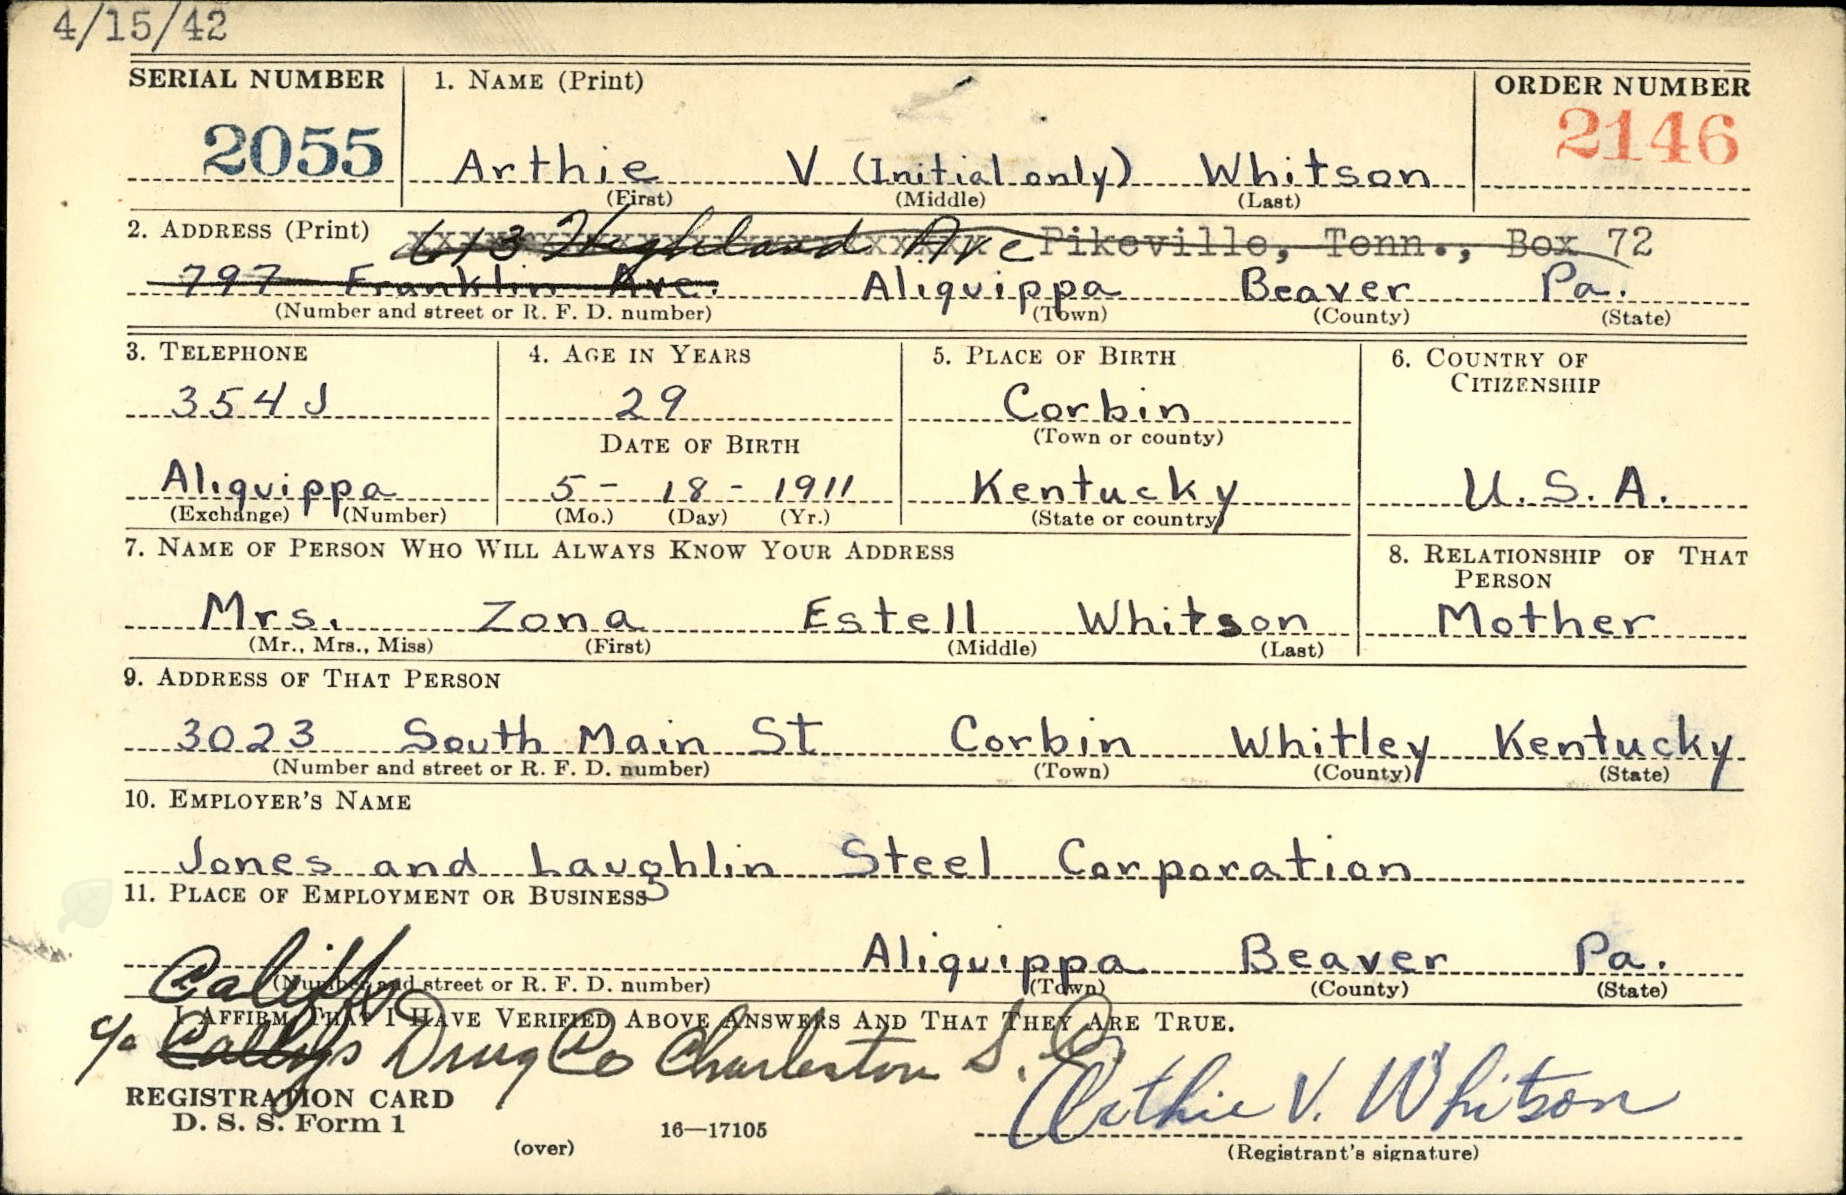 4/15/42
SERIAL NUMBER 1. NAME (Print) ORDER NUMBER
2055 Arthie V (Initial only) Whitson 2146
(First) (Middle) (Last)
2. ADDRESS (Print) 613 Highland Ave Pikeville, Tenn., Box 72
797 Franklin Ave. Aliquippa Beaver Pa.
(Number and street or R. F. D. number) (Town) (County) (State)
3. TELEPHONE 4. AGE IN YEARS 5. PLACE OF BIRTH 6. COUNTRY OF
CITIZENSHIP
354 J 29 Corbin
DATE OF BIRTH (Town or county)
Aliquippa 5 - 18 - 1911 Kentucky U. S. A.
(Exchange) (Number) (Mo.) (Day) (Yr.) (State or country)
7. NAME OF PERSON WHO WILL ALWAYS KNOW YOUR ADDRESS 8. RELATIONSHIP OF THAT
PERSON
Mrs. Zona Estell Whitson Mother
(Mr., Mrs., Miss) (First) (Middle) (Last)
9. ADDRESS OF THAT PERSON
3023 South Main St Corbin Whitley Kentucky
(Number and street or R. F. D. number) (Town) (County) (State)
10. EMPLOYER'S NAME
Jones and Laughlin Steel Corporation
11. PLACE OF EMPLOYMENT OR BUSINESS
Aliquippa Beaver Pa.
(Number and street or R. F. D. number) (Town) (County) (State)
I AFFIRM THAT I HAVE VERIFIED ABOVE ANSWERS AND THAT THEY ARE TRUE.
c/o Drug Co Charleston S. C.
Arthie V. Whitson
REGISTRATION CARD
D. S. S. Form 1
(over) 16—17105 (Registrant's signature)